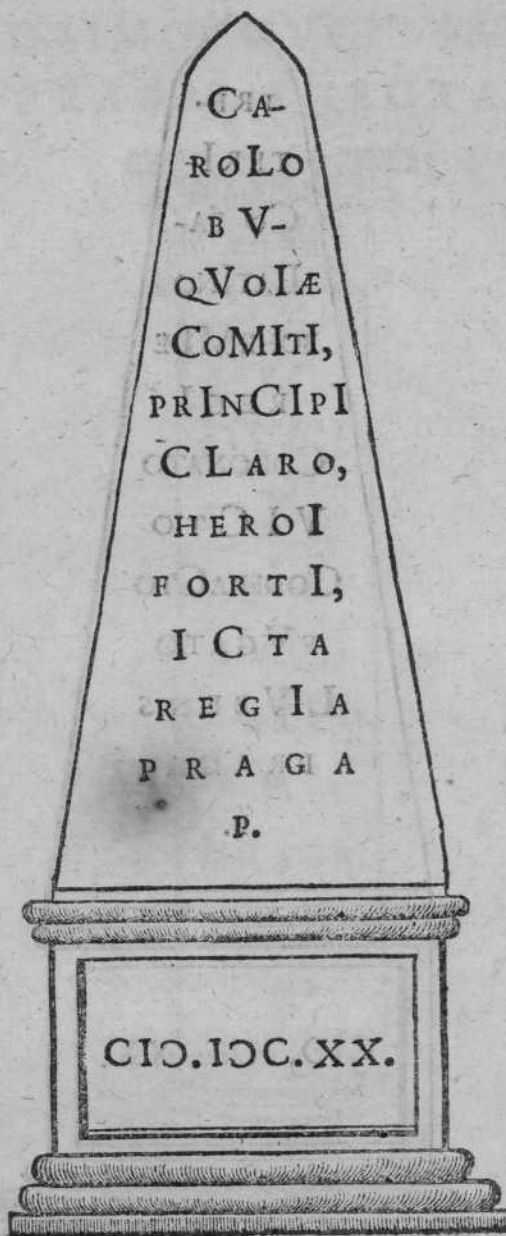 CA-
ROLO
BV-
QVOIÆ
COMITI,
PRINCIPI
CLARO,
HEROI
FORTI,
ICTA
REGIA
PRAGA
P.
CIƆ.IƆC.XX.